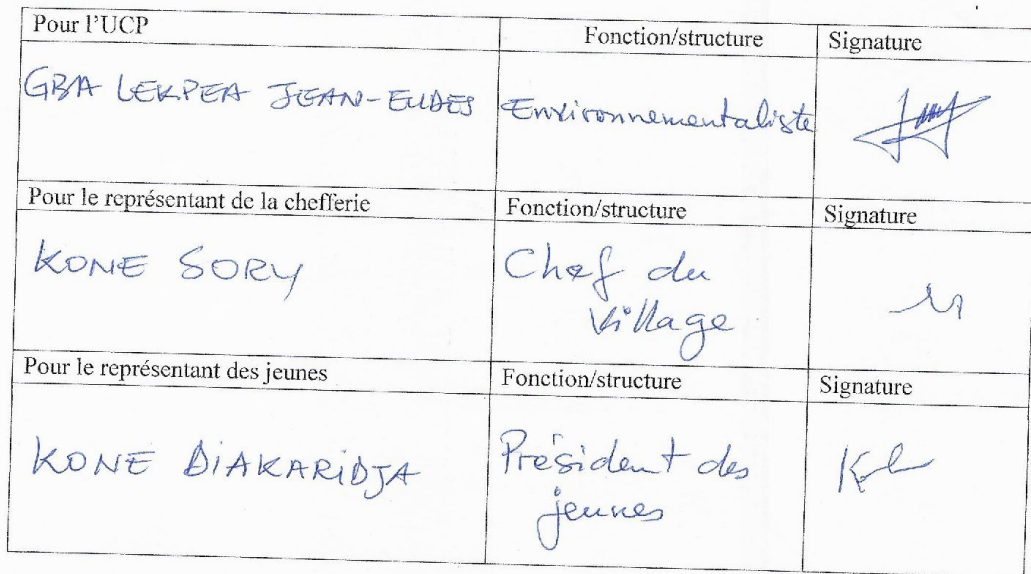 Pour l'UCP Fonction/structure Signature
GBA LEKPEA JEAN-EUDES Environnementaliste
Pour le représentant de la chefferie Fonction/structure Signature
KONE SORY Chef du
village
Pour le représentant des jeunes Fonction/structure Signature
KONE DIAKARIDJA Président des
jeunes